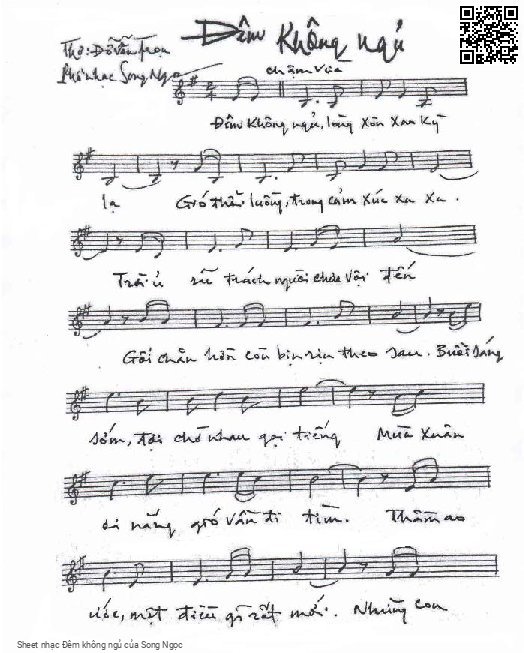 Đêm Không ngủ
Thơ: Đỗ Văn Trọn
Phổ nhạc Song Ngọc
chậm vừa
Đêm không ngủ, lòng xôn xao kỳ
lạ Gió thầm luồng, trong cảm xúc xa xa.
Trời ủ rũ trách người chưa vội đến
Gối chăn hờn còn bịn rịn theo sau. Buổi sáng
sớm, đợi chờ nhau gọi tiếng Mùa Xuân
và nắng gió vẫn đi tìm. Thầm ao
ước, một điều gì rất mới. Những con
Sheet nhạc Đêm không ngủ của Song Ngọc